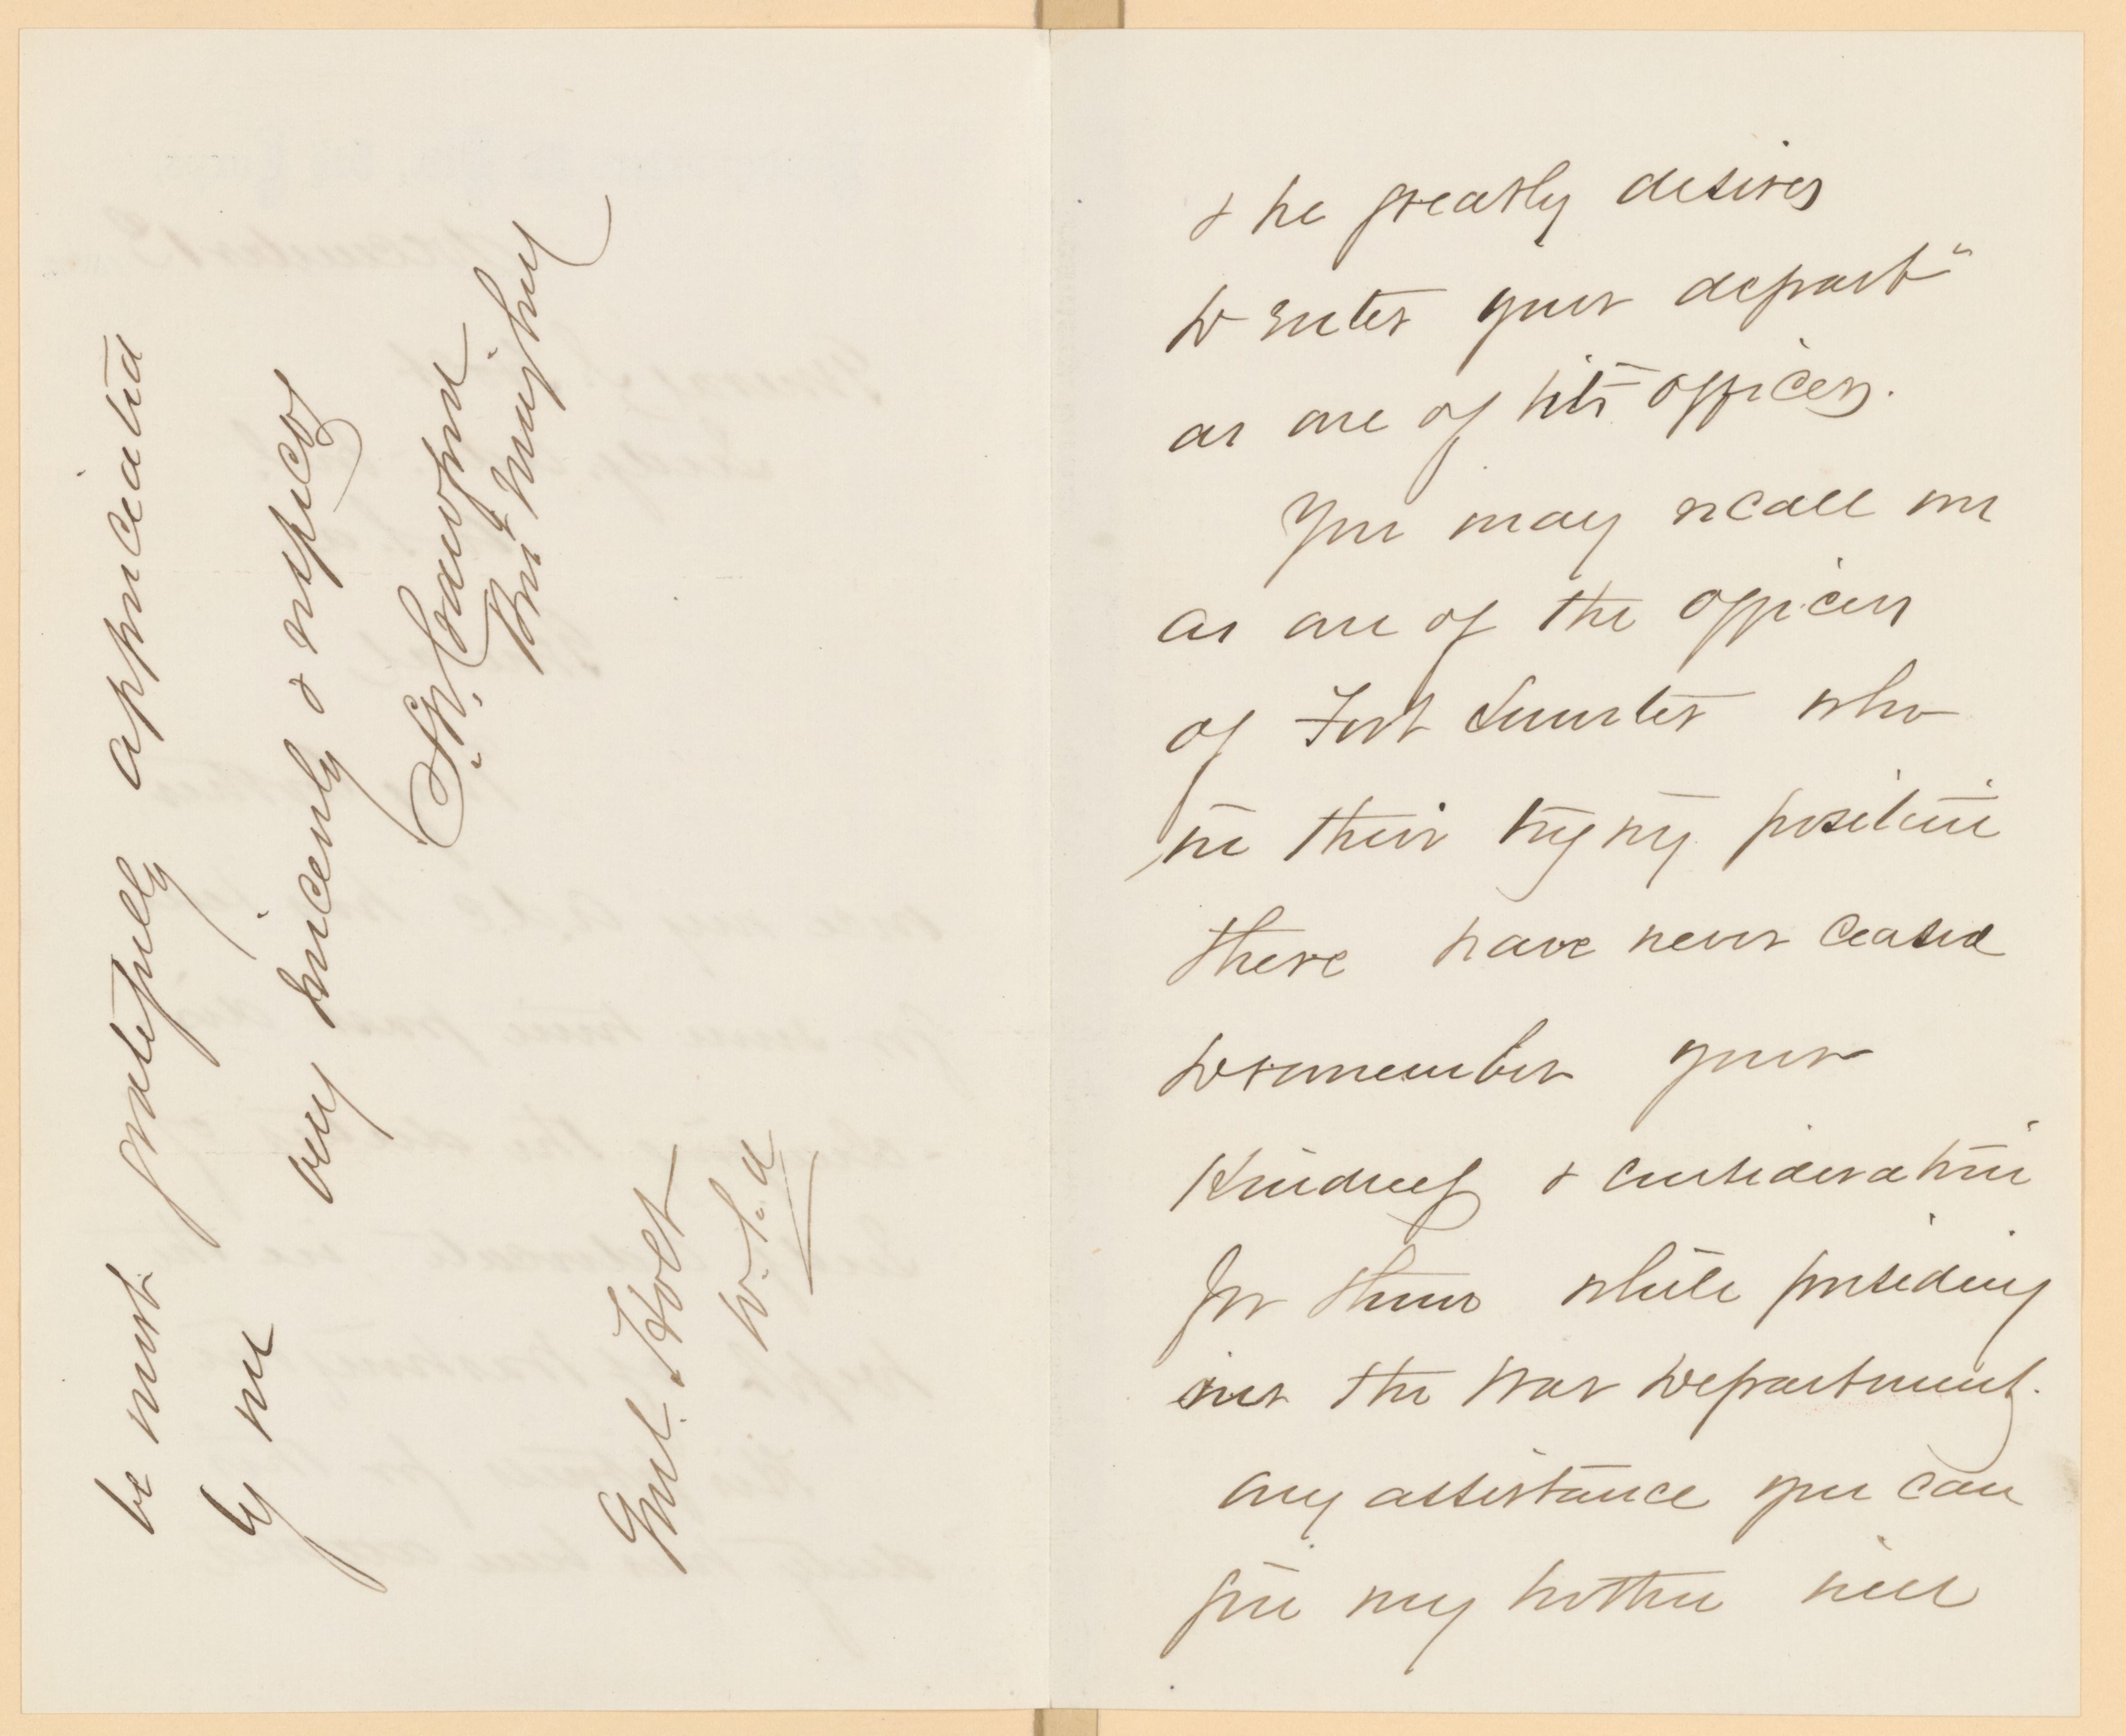 & he greatly desires
to enter your depart"
as one of its officers.
You may recall me
as one of the officers
of Fort Sumter who
in their trying position
there have never ceased
to remember your
Kindness & consideration
for them while presiding
over the War Department.
any assistance you can
give my brother will
be most gratefully appreciated
by me
very sincerely & respecty
S.W. Crawford
Brig
Genl. Holt
W.